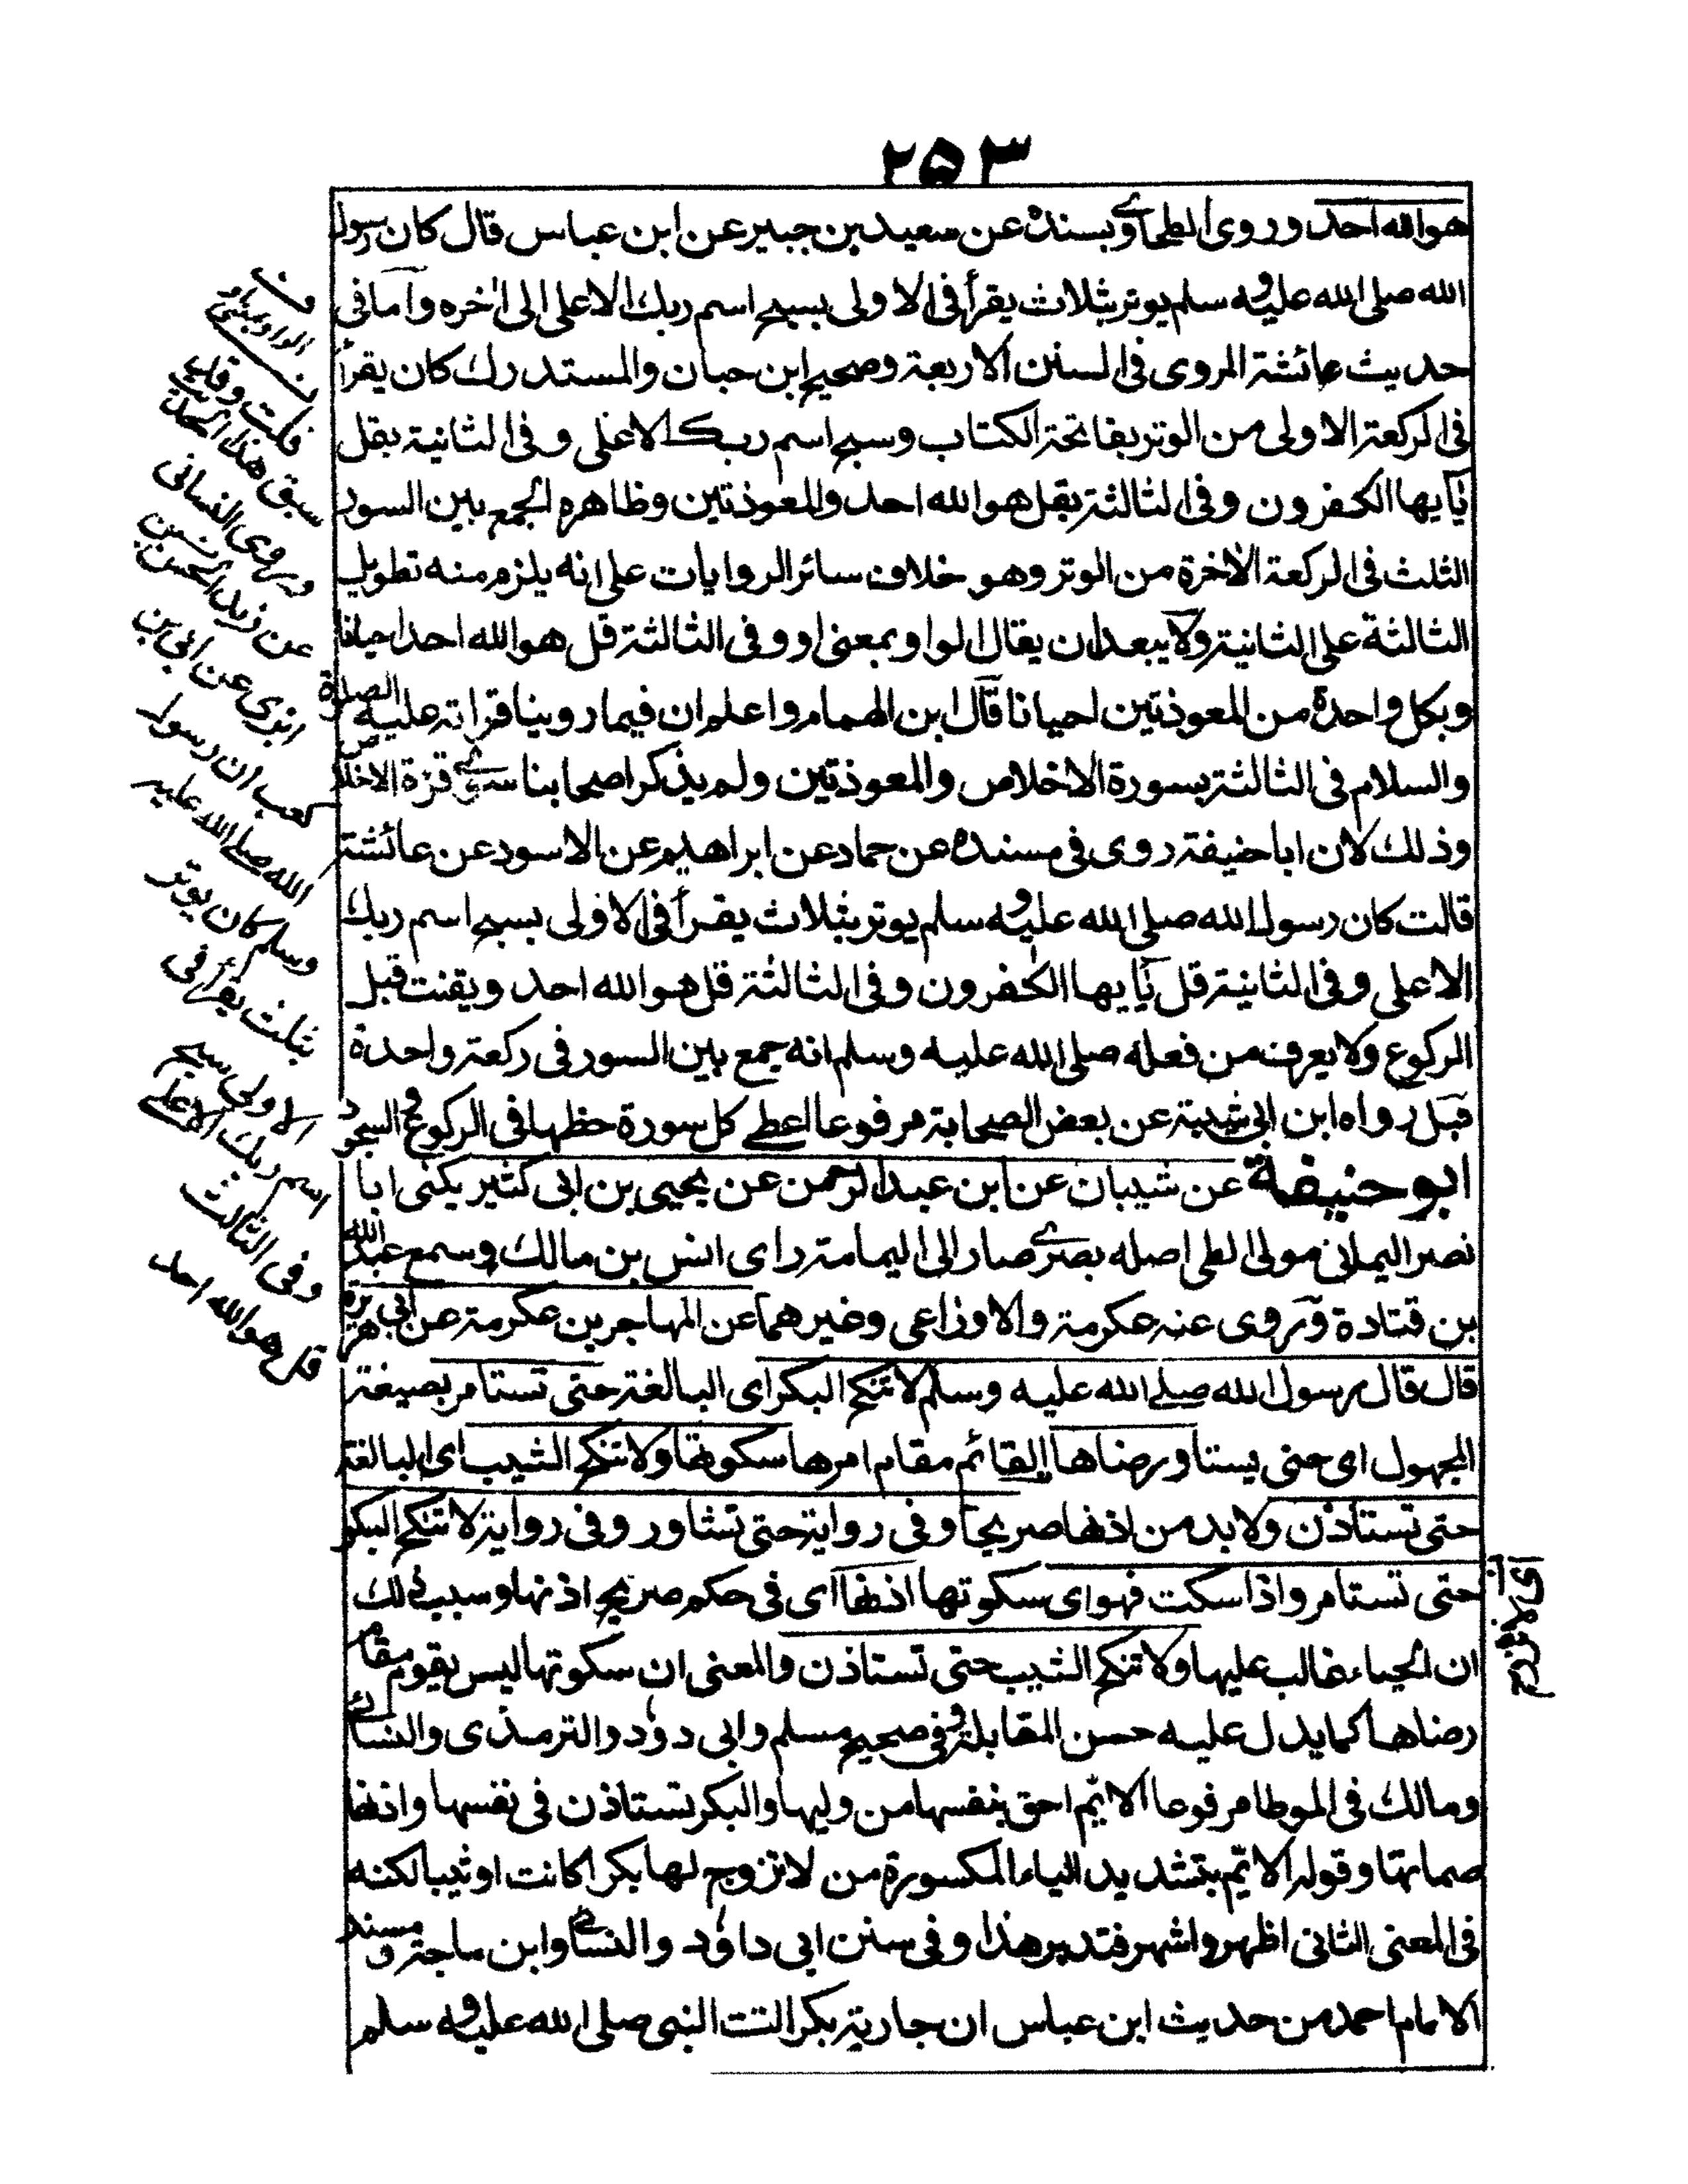 ٢٥٣
هو الله احد وروى الطحاوي بسنده عن سعيد بن جبير عن ابن عباس قال كان رسول
الله صلى الله عليه وسلم يوتر بثلاث يقرأ فى الاولى بسبح اسم ربك الاعلى الى اخره واما فى
حديث عائشة المروى فى السنن الاربعة وصحيح ابن حبان والمستدرك كان يقرأ
فى الركعة الاولى من الوتر بفاتحة الكتاب وسبح اسم ربك الاعلى وفى الثانية بقل
يٰٓايها الكٰفرون وفى الثالثة بقل هو الله احد والمعوذتين وظاهره الجمع بين السور
الثلث فى الركعة الاخرة من الوتر وهو خلاف سائر الروايات على انه يلزم منه تطويل
الثالثة على الثانية ولا يبعد ان يقال الواو بمعنى او وفى الثالثة قل هو الله احد احيانا
وبكل واحدة من المعوذتين احيانا قال ابن الهمام واعلم ان فيما روينا قراته عليه الصلوة
والسلام فى الثالثة بسورة الاخلاص والمعوذتين ولم يذكر اصحابنا سوى قرة الاخلاص
وذلك لان ابا حنيفة روى فى مسنده عن حماد عن ابراهيم عن الاسود عن عائشة
قالت كان رسول الله صلى الله عليه وسلم يوتر بثلاث يقرأ فى الاولى بسبح اسم ربك
الاعلى وفى الثانية قل يٰٓايها الكٰفرون وفى الثالثة قل هو الله احد ويقنت قبل
الركوع ولا يعرف من فعله صلى الله عليه وسلم انه جمع بين السور فى ركعة واحدة
قبل رواه ابن ابى شيبة عن بعض الصحابة مرفوعا اعطى كل سورة حظها فى الركوع والسجود
ابو حنيفة عن شيبان عن ابن عبد الرحمن عن يحيى بن ابى كثير يكنى ابا
نصر اليمانى مولى لطى اصله بصرى صار الى اليمامة راى انس بن مالك وسمع عبد الله
بن قتادة وروى عنه عكرمة والاوزاعى وغيرهما عن المهاجر بن عكرمة عن ابى هريرة
قال قال رسول الله صلى الله عليه وسلم لا تنكح البكر اى البالغة حتى تستامر بصيغة
المجهول اى حتى يستا ورضاها القائم مقام امرها سكوتها ولا تنكح الثيب اى البالغة
حتى تستاذن ولا بد من اذنها صريحا وفى رواية حتى تشاور وفى رواية لا تنكح البكر
حتى تستامر واذا سكت فهو اى سكوتها اذنها اى فى حكم صريح اذنها وسبب ذلك
ان الحياء غالب عليها ولا تنكح الثيب حتى تستاذن والمعنى ان سكوتها ليس يقوم مقام
رضاها كما يدل عليه حسن المقابلة وفى صحيح مسلم وابى دؤد والترمذى والنسائى
ومالك فى الموطا مرفوعا الايّم احق بنفسها من وليها والبكر تستاذن فى نفسها واذنها
صماتها وقوله الايّم بتشديد الياء المكسورة من لا تزوج لها بكرا كانت او ثيبا لكنه
فى المعنى الثانى اظهر واشهر فتدبر هذا وفى سنن ابى داؤد والنسائى وابن ماجة و مسند
الامام احمد من حديث ابن عباس ان جارية بكرا اتت النبى صلى الله عليه وسلم
قلت وقد
سبق هذا الحديث
وروى النسائى
كعب ان رسول
الله صلى الله عليه
وسلم كان يوتر
بثلث يقرأ فى
الاولى سبح
اسم ربك الاعلى
وفى الثالث
قل هو الله احد